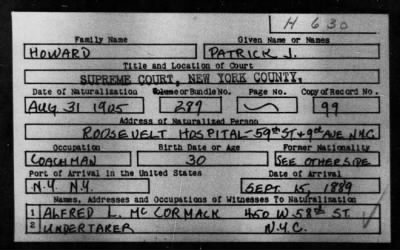 H 630
Family Name Given Name or Names
HOWARD PATRICK J.
Title and Location of Court
SUPREME COURT, NEW YORK COUNTY,
Date of Naturalization Volume or Bundle No. Page No. Copy of Record No.
AUG 31 1905 287 99
Address of Naturalized Person
ROOSEVELT HOSPITAL-59th ST & 9th AVE N.Y.C.
Occupation Birth Date or Age Former Nationality
COACHMAN 30 SEE OTHER SIDE
Port of Arrival in the United States Date of Arrival
N.Y. N.Y. SEPT. 15, 1889
Names, Addresses and Occupations of Witnesses To Naturalization
1 ALFRED L. McCORMACK 450 W 58th ST.
2 UNDERTAKER N.Y.C.